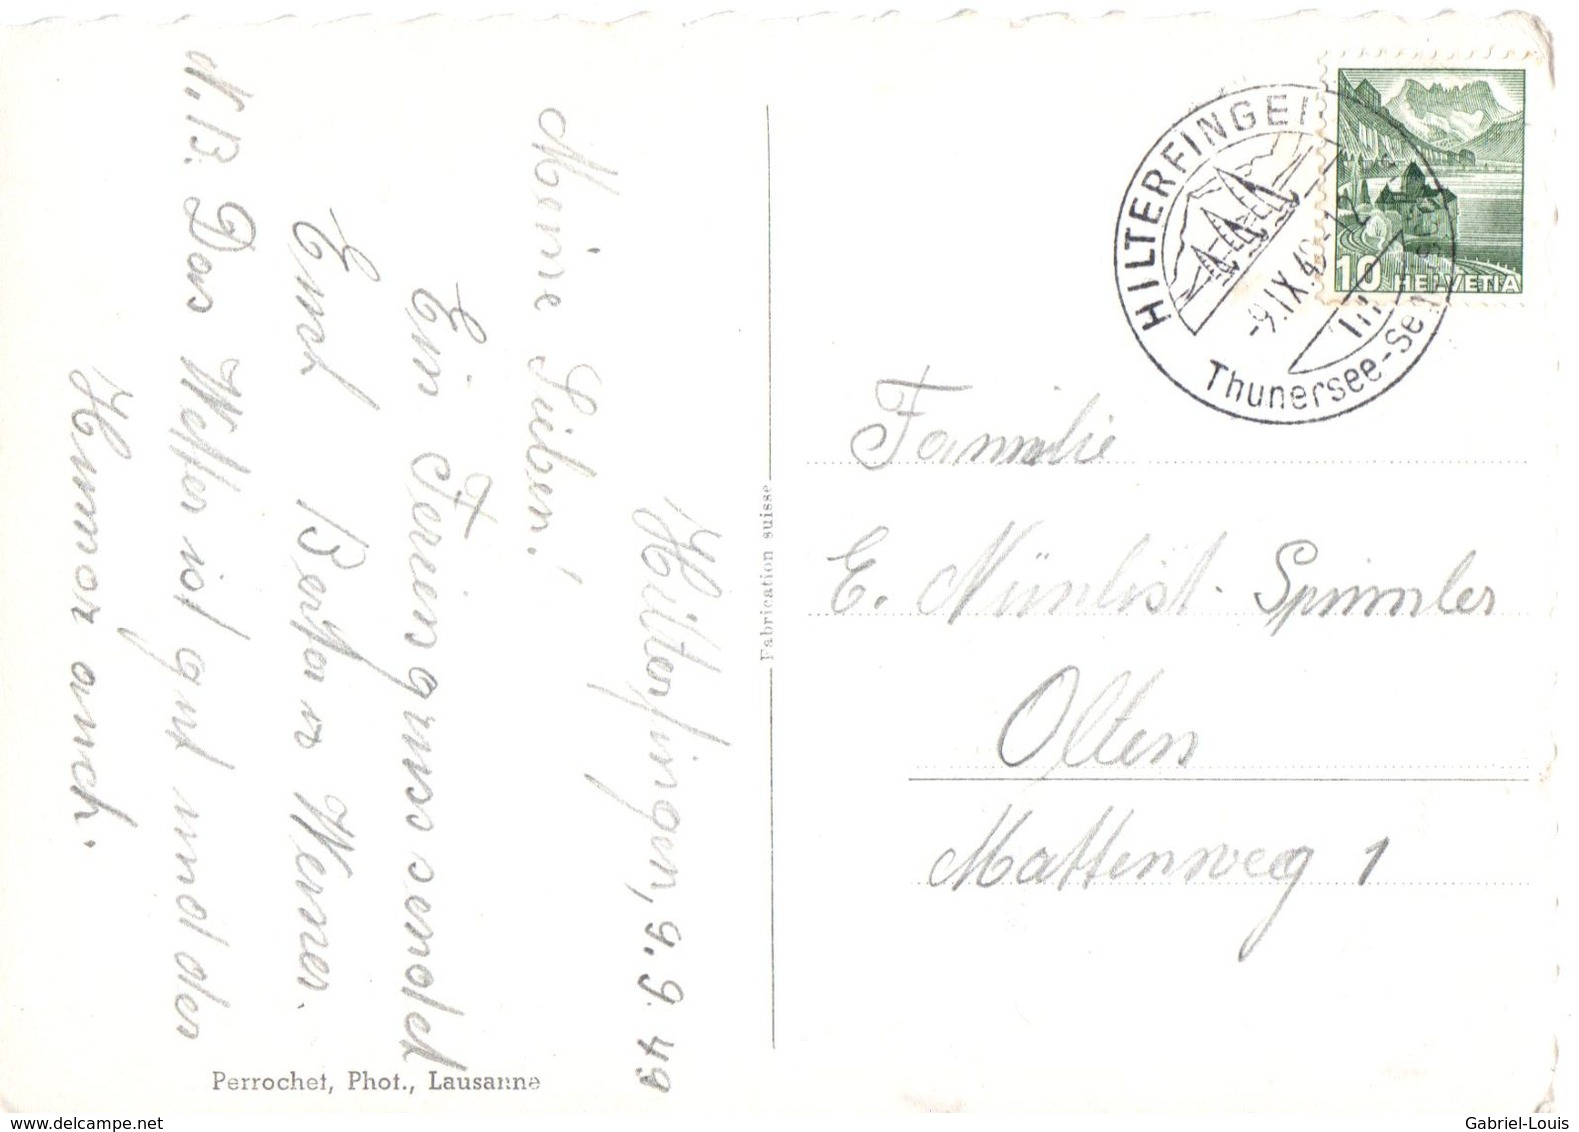 Hilterfingen, 9. 9. 49
Meine Lieben!
Ein Feriengruss sendet
Euch Werner.
N.B. Das Wetter ist gut und der
Humor auch.
Fabrication suisse
Perrochet, Phot., Lausanne
HILTERFINGEN
-9.IX.49
Thunersee-
10 HELVETIA
Familie
E. Nünlist-Spinnler
Olten
Mattenweg 1
www.delcampe.net
Gabriel-Louis